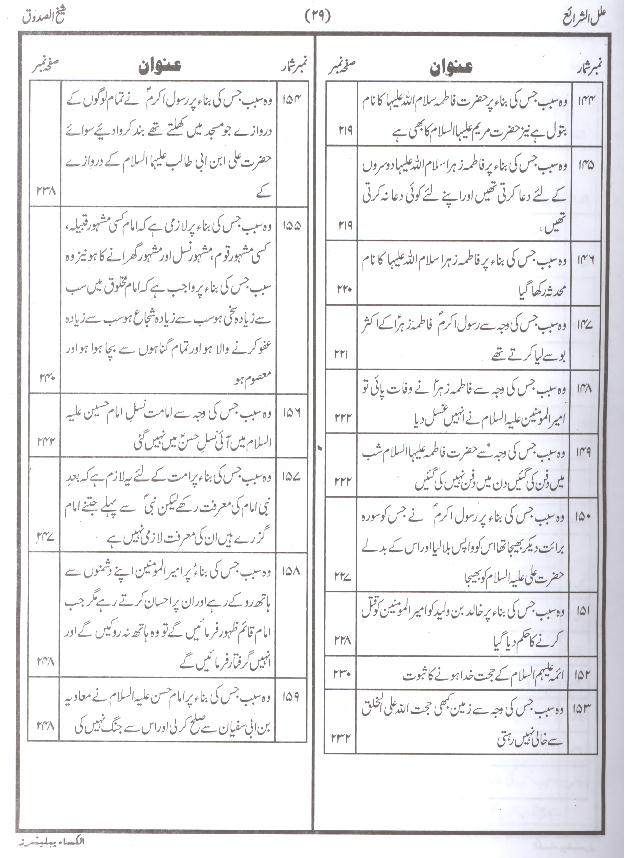 علل الشرائع (۲۹) شیخ الصدوق
نمبر شمار عنوان صفحہ نمبر
۱۴۴ وہ سبب جس کی بناء پر حضرت فاطمہ سلام اللہ علیہا کا نام
بتول ہے نیز حضرت مریم علیہا السلام کا بھی ہے ۲۱۹
۱۴۵ وہ سبب جس کی بناء پر فاطمہ زہرا سلام اللہ علیہا دوسروں
کے لئے دعا کرتی تھیں اور اپنے لئے کوئی دعا نہ کرتی
تھیں ۲۱۹
۱۴۶ وہ سبب جس کی بناء پر فاطمہ زہرا سلام اللہ علیہا کا نام
محدثہ رکھا گیا ۲۲۰
۱۴۷ وہ سبب جس کی وجہ سے رسول اکرمؐ فاطمہ زہراؑ کے اکثر
بوسے لیا کرتے تھے ۲۲۱
۱۴۸ وہ سبب جس کی وجہ سے فاطمہ زہراؑ نے وفات پائی تو
امیر المومنین علیہ السلام نے انہیں غسل دیا ۲۲۲
۱۴۹ وہ سبب جس کی وجہ سے حضرت فاطمہ علیہا السلام شب
میں دفن کی گئیں دن میں دفن نہیں کی گئیں ۲۲۲
۱۵۰ وہ سبب جس کی بناء پر رسول اکرمؐ نے جس کو سورہ
برائت دیکر بھیجا تھا اس کو واپس بلا لیا اور اس کے بدلے
حضرت علی علیہ السلام کو بھیجا ۲۲۷
۱۵۱ وہ سبب جس کی بناء پر خالد بن ولید کو امیر المومنین کو قتل
کرنے کا حکم دیا گیا ۲۲۸
۱۵۲ ائمہ علیہم السلام کے حجت خدا ہونے کا ثبوت ۲۳۰
۱۵۳ وہ سبب جس کی وجہ سے زمین کبھی حجت اللہ علی الخلق
سے خالی نہیں رہتی ۲۳۲
نمبر شمار عنوان صفحہ نمبر
۱۵۴ وہ سبب جس کی بناء پر رسول اکرمؐ نے تمام لوگوں کے
دروازے جو مسجد میں کھلتے تھے بند کروا دیئے سوائے
حضرت علی ابن ابی طالب علیہا السلام کے دروازے
کے ۲۳۸
۱۵۵ وہ سبب جس کی بناء پر لازمی ہے کہ امام کسی مشہور قبیلہ،
کسی مشہور قوم، مشہور نسل اور مشہور گھرانے کا ہو نیز وہ
سبب جس کی بناء پر واجب ہے کہ امام مخلوق میں سب
سے زیادہ سخی ہو سب سے زیادہ شجاع ہو سب سے زیادہ
عفو کرنے والا ہو اور تمام گناہوں سے بچا ہوا ہو اور
معصوم ہو ۲۴۰
۱۵۶ وہ سبب جس کی وجہ سے امامت نسل امام حسین علیہ
السلام میں آئی نسل حسنؑ میں نہیں گئی ۲۴۲
۱۵۷ وہ سبب جس کی بناء پر امت کے لئے یہ لازم ہے کہ بعد
نبی امام کی معرفت رکھے لیکن نبیؐ سے پہلے جتنے امام
گزرے ہیں ان کی معرفت لازمی نہیں ہے ۲۴۷
۱۵۸ وہ سبب جس کی بناء پر امیر المومنین اپنے دشمنوں سے
ہاتھ روکے رہے اور ان پر احسان کرتے رہے مگر جب
امام قائم ظہور فرمائیں گے تو وہ ہاتھ نہ روکیں گے اور
انہیں گرفتار فرمائیں گے ۲۴۸
۱۵۹ وہ سبب جس کی بناء پر امام حسن علیہ السلام نے معاویہ
بن ابی سفیان سے صلح کر لی اور اس سے جنگ نہیں کی ۲۴۸
الکساء پبلیشرز